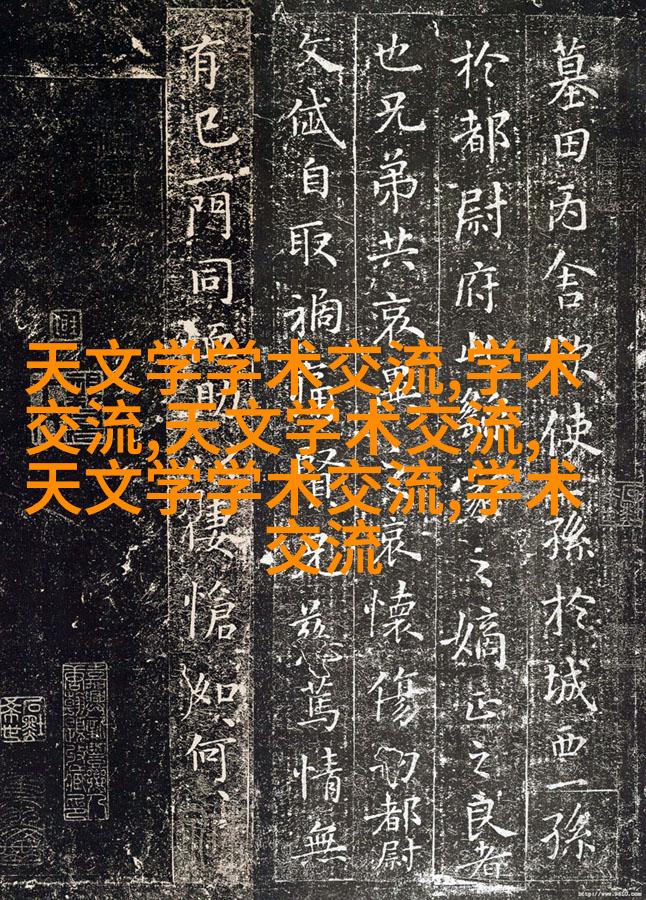 墓田丙舍欲使孫於城西一孫
於都尉府此繇家之嫡正之良者
也兄弟共哀異哀懷傷切都尉
文岱自取禍痛賢兄慈篤情無
有已一門同助悽愴如何
天文学学术交流,学术
交流,天文学术交流,
天文学学术交流,学术
交流